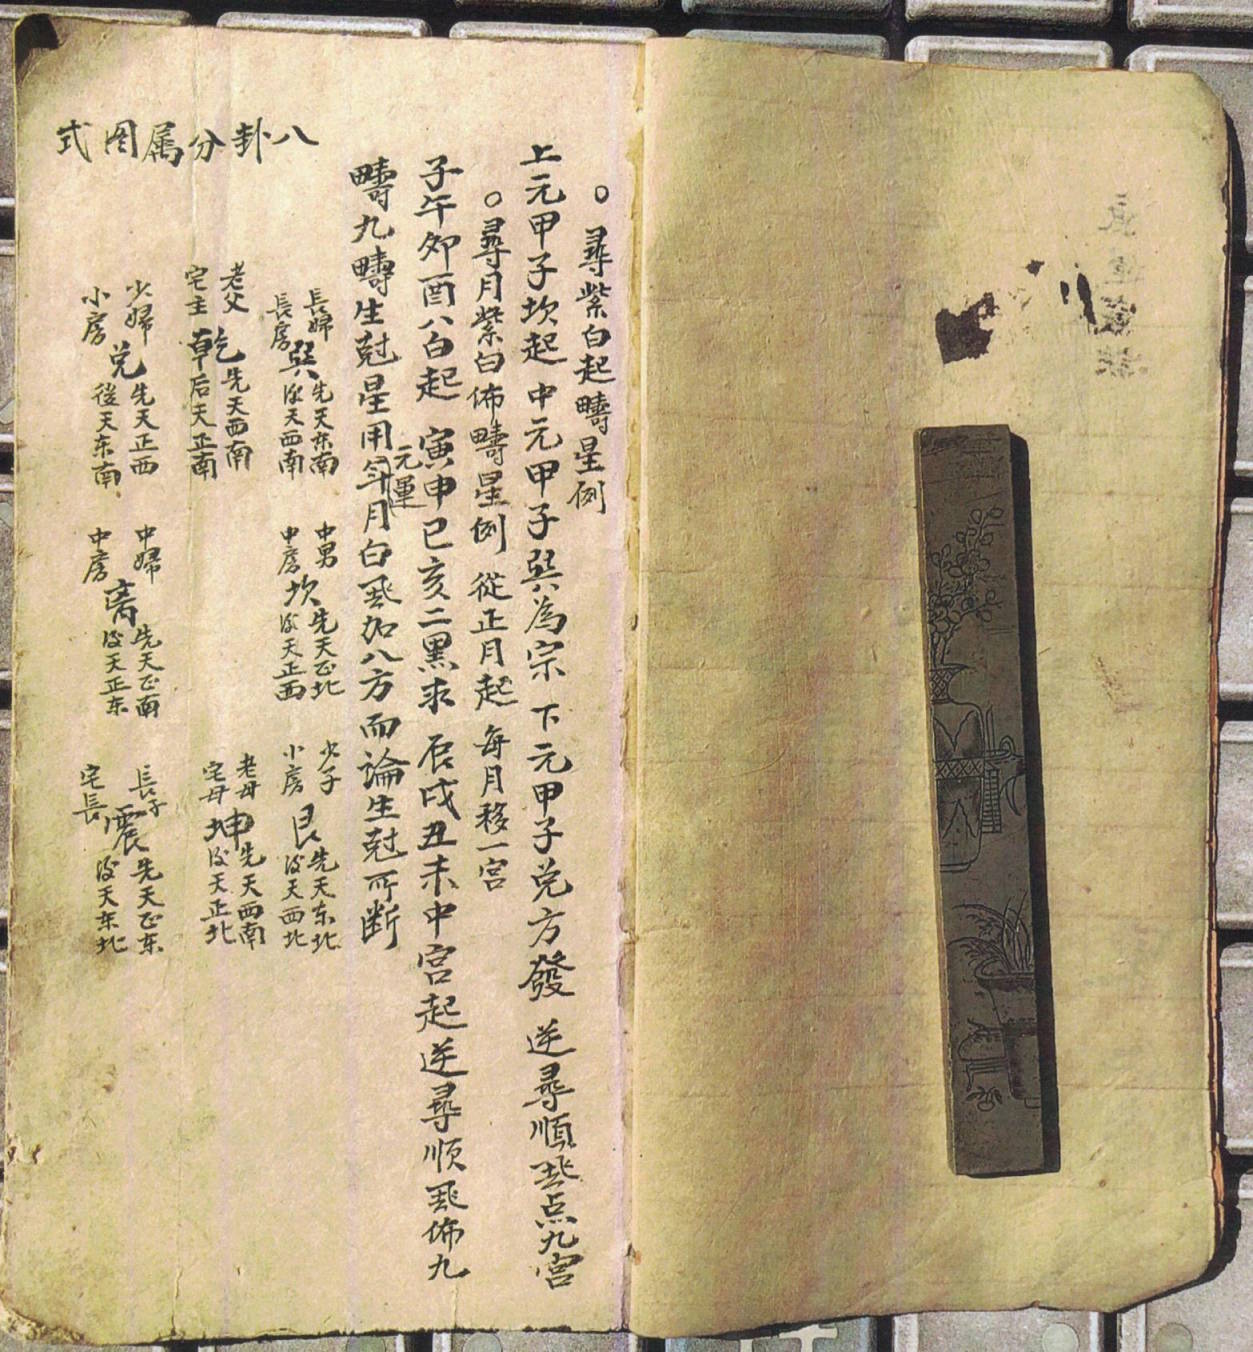 ○尋紫白起疇星例
上元甲子坎起 中元甲子巽為宗 下元甲子兑方發 逆尋順飛点九宮
○尋月紫白佈疇星例 從正月起 每月移一宮
子午夘酉八白起 寅申巳亥二黑求 辰戌丑未中宮起 逆尋順飛佈九
疇九疇生尅星用年月白飛加八方而論生尅可断
元運
八卦分属图式
長婦
長房
巽
先天东南
后天西南
中男
中房
坎
先天正北
后天正西
少子
小房
艮
先天东北
后天西北
老父
宅主
乾
先天西南
后天正南
老母
宅母
坤
先天西南
后天正北
少婦
小房
兑
先天正西
後天东南
中婦
中房
离
先天正南
后天正东
長子
宅長
震
先天正东
后天东北